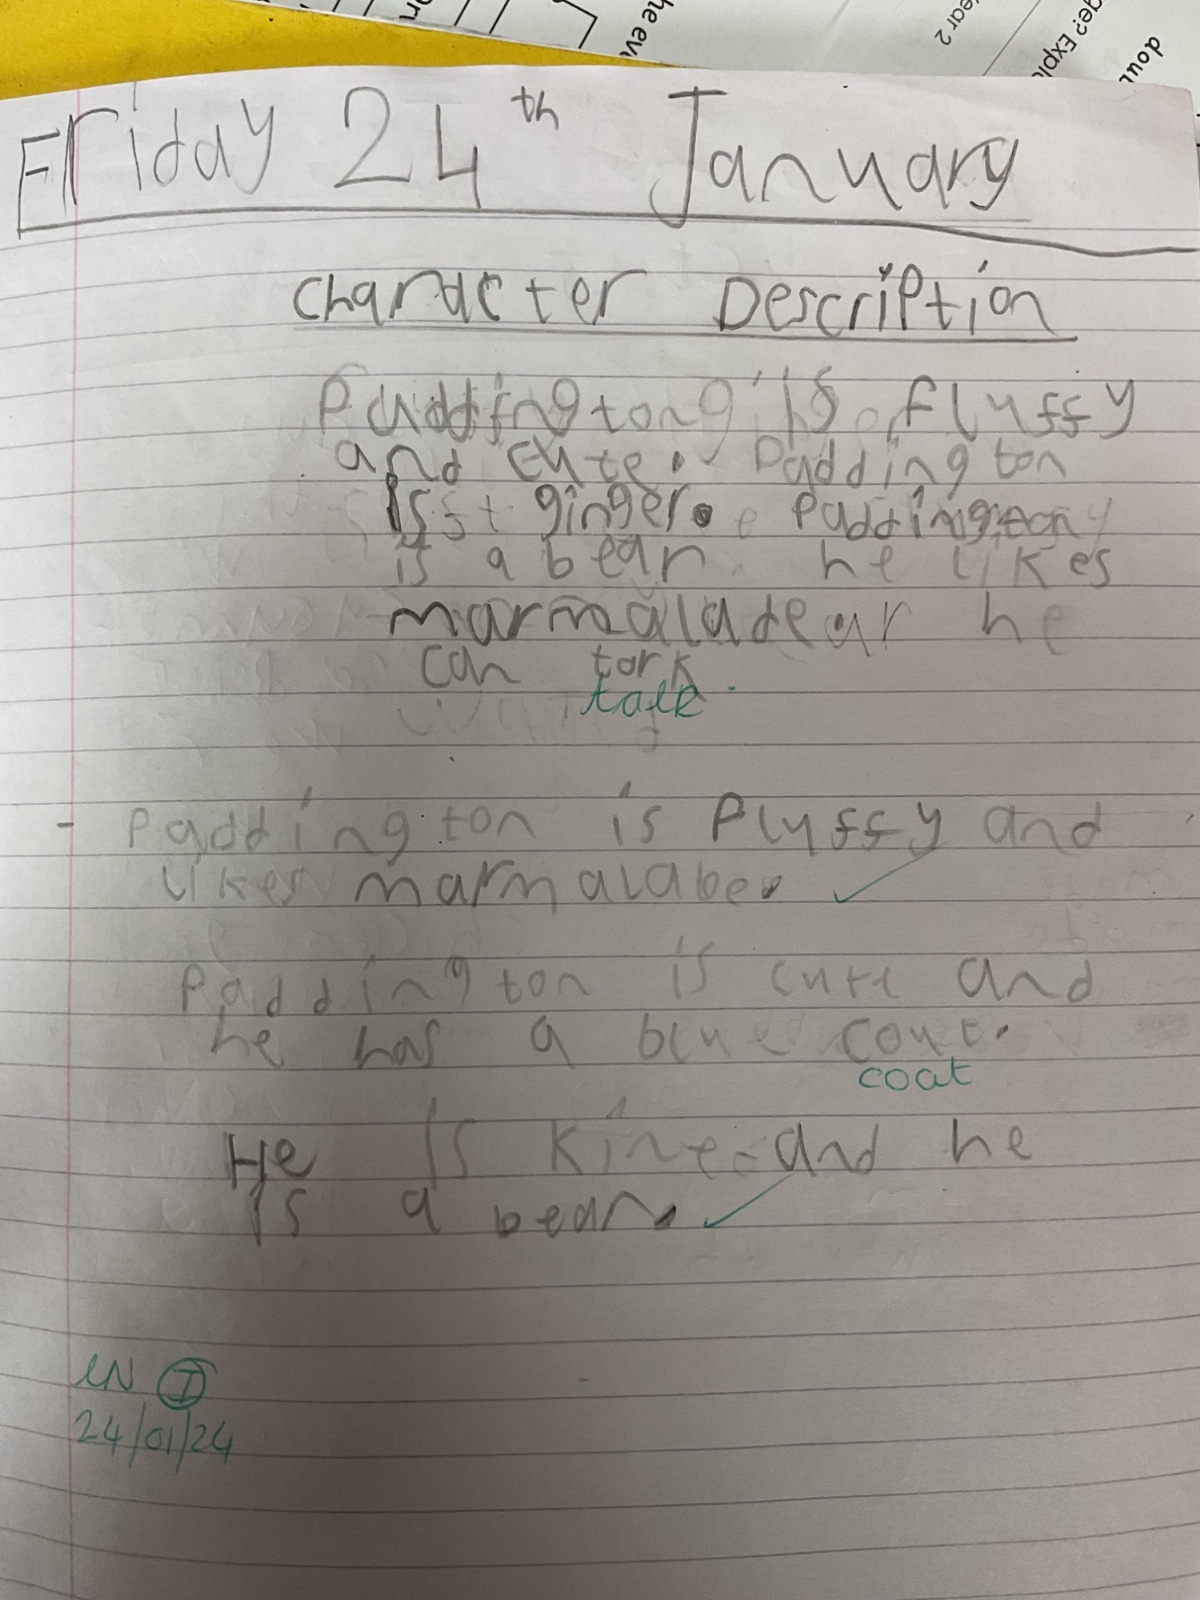 on
he ev
year 2
ge? Expl
dou
Friday 24th January
Character Description
Paddingtong is fluffy
and cute. Paddington
is ginger. Paddington
is a bear. he likes
marmalade he
can tork
talk.
- Paddington is Fluffy and
likes marmalabe.
Paddington is cute and
he has a blue cout.
coat
He is kine and he
is a bear.
EN I
24/01/24